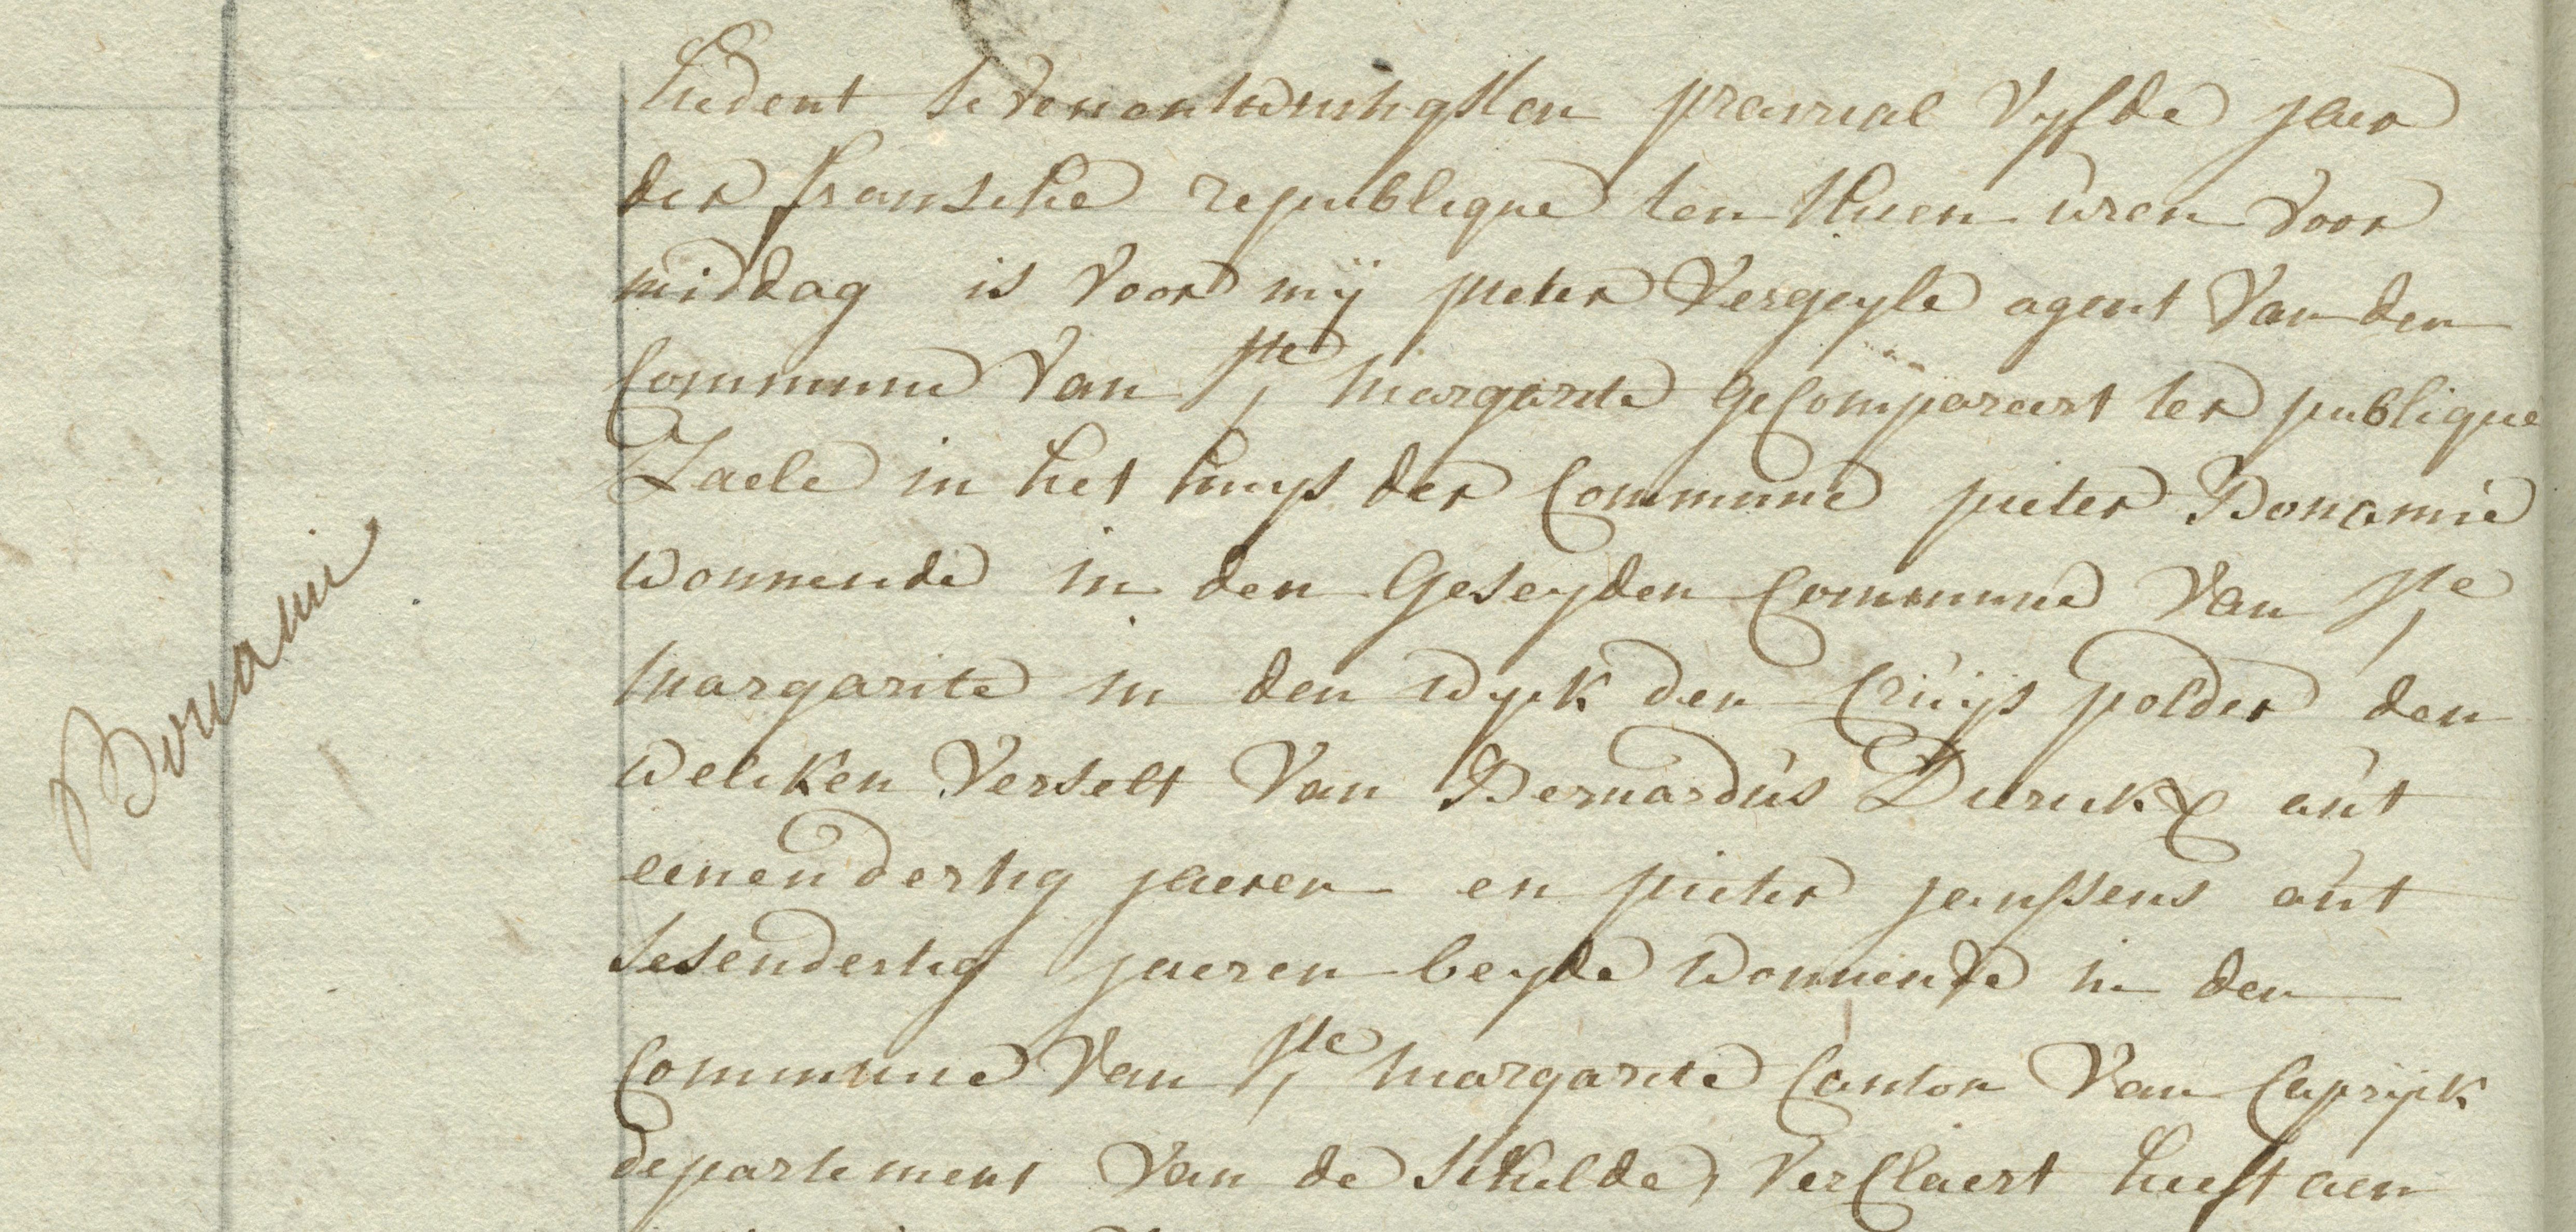 hedent sevenentwintigsten prairial Vyfde jaer
der fransche republique ten thien uren voor
middag is voor mij pieter Vergeyle agent van den
Commune van Ste margarite geCompareert ter publique
Zaele in het huys der Commune pieter Bonamie
Bonami
wonnende in den geseyden Commune van Ste
margarite in den wyk den Cruijs polder den
welcken verselt van Bernardus Durickx aut
eenendertig jaeren en pieter janssens aut
sesendertig jaeren beyde wonnende in den
Commune van Ste margarite Canton van Caprijck
departement van de schelde, verClaert heeft aen